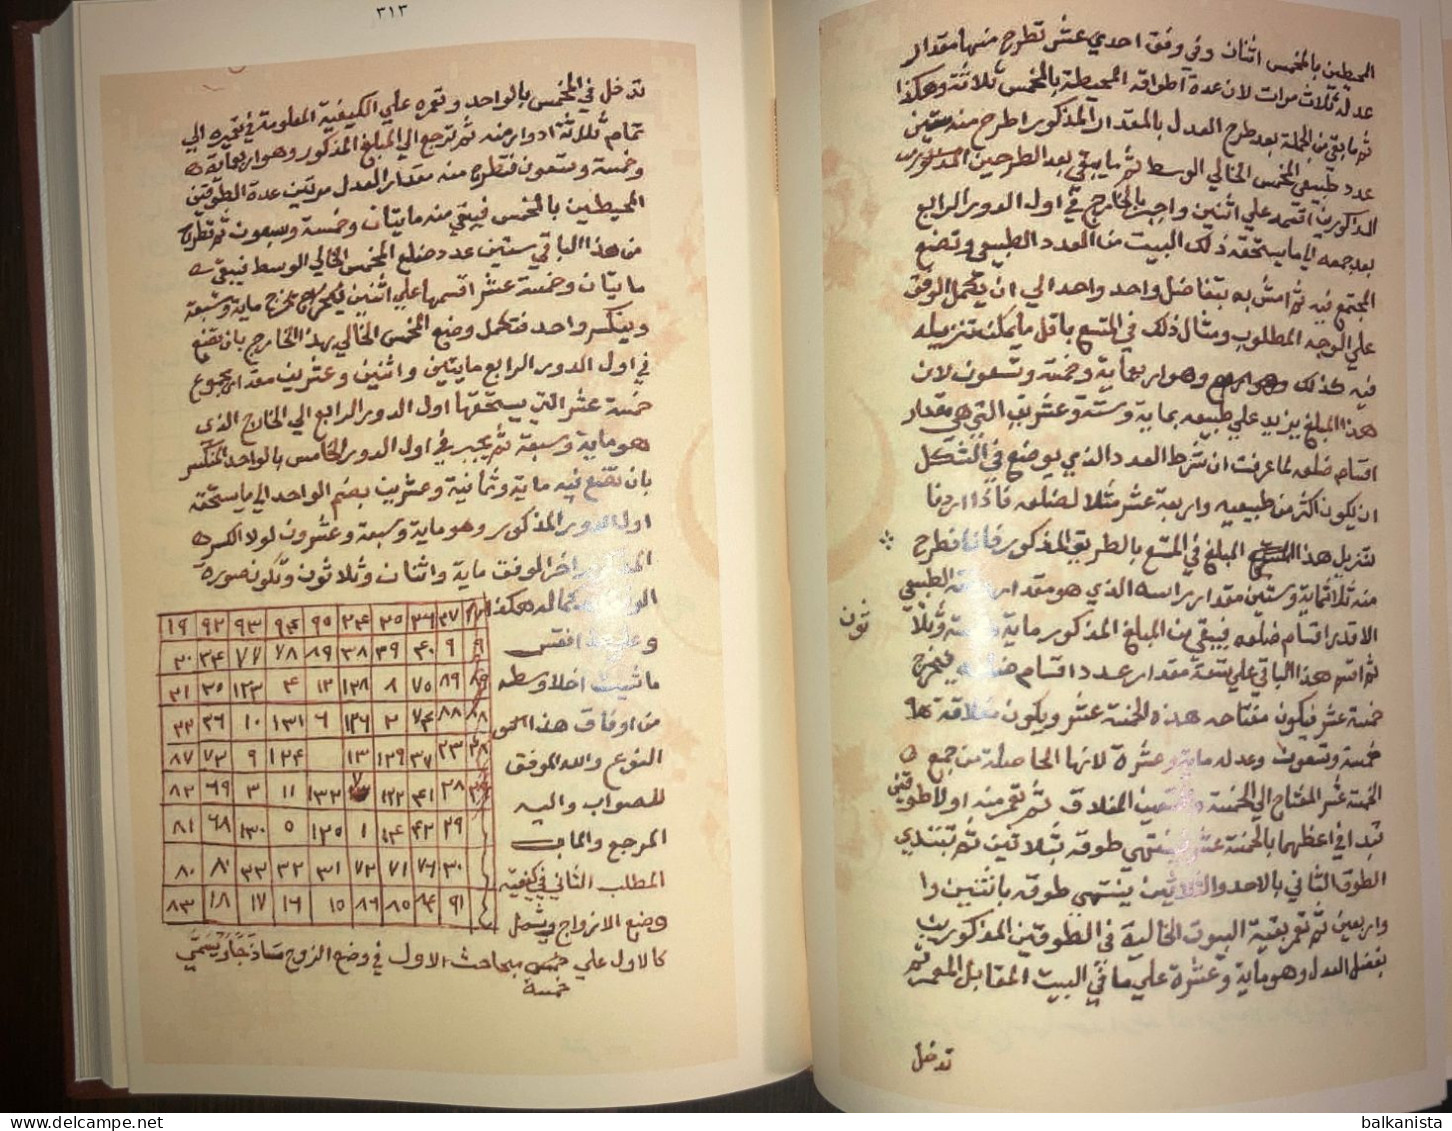 المحيطين بالمخمس اثنان وفي وفق احدي عشر تطرح منها مقدار
عدله ثلاث مرات لان عدة اطواقه المحيطة بالمخمس ثلاثة وهكذا
ثم ما بقي من الجملة بعد طرح العدل بالمقدار المذكور اطرح منه ستين
عدد طبيعي المخمس الخالي الوسط ثم ما يبقي بعد الطرحين المذكورين
المذكورين اقسمه علي اثنين واجب بالخارج في اول الدور الرابع
بعد جمعه الي ما يستحقه ذلك البيت من العدد الطبيعي وتضع
المجتمع فيه ثم امش به بتفاضل واحد واحد الي ان يكمل الوفق
علي الوجه المطلوب ومثال ذلك في المتسع باقل ما يمكنه تنزيله
فيه كذلك وهو اربعماية وخمسة وتسعون لان
هذا المبلغ يزيد علي طبيعيه بماية وستة وعشرين التي هي مقدار
اقسام ضلعه لما عرفت ان شرط العدد الذي يوضع في الشكل
ان يكون اكثر من طبيعيه واربعة عشر مثلا لضلعه فاذا اردنا
تنزيل هذا المبلغ في المتسع بالطريق المذكور فانا نطرح
منه ثلاثماية وستين مقدار راسه الذي هو مقدار الطبيعي
الاقدر اقسام ضلعه فيبقي من المبلغ المذكور ماية وخمسة وثلا
ثون
ثم اقسم هذا الباقي علي تسعة مقدار عدد اقسام ضلعه فيخرج
خمسة عشر فيكون مفتاحه هذه الخمسة عشر ويكون مغلاقة
خمسة وتسعون وعدله ماية وعشرة لانها الحاصلة من جمع
الخمسة عشر المفتاح الي الخمسة والتسعين المغلاق ثم تعمر منه اولا طوقين
تبدا في اعظمها بالخمسة عشر فينتهي طوقه بثلاثين ثم تبتدي
الطوق الثاني بالاحد والثلاثين ينتهي طوقه باثنين وا
واربعين ثم تعمر بقية البيوت الخالية في الطوقين المذكورين
بفضل العدل وهو ماية وعشرة علي ما في البيت المقابل المعمر ثم
تدخل
٣١٣
تدخل في المخمس بالواحد وتعمره علي الكيفية المعلومة في تعميره الي
تمام ثلاثة ادوار منه ثم ترجع الي المبلغ المذكور وهو اربعماية
وخمسة وتسعون فتطرح منه مقدار العدل مرتين عدة الطوقين
المحيطين بالمخمس فيبقي منه مايتان وخمسة وسبعون ثم تطرح
من هذا الباقي ستين عدد ضلع المخمس الخالي الوسط فيبقي
مايتان وخمسة عشر اقسمها علي اثنين يخرج ماية وسبعة
وينكسر واحد فتكمل وضع المخمس الخالي بهذا الخارج بان تضع
في اول الدور الرابع مايتين واثنين وعشرين مقدار مجموع
خمسة عشر التي يستحقها اول الدور الرابع الي الخارج الذي
هو ماية وسبعة ثم يجبر في اول الدور الخامس بالواحد المنكسر
بان تضع فيه ماية وثمانية وعشرين بضم الواحد الي ما يستحقه
اول الدور المذكور وهو ماية وسبعة وعشرون لولا الكسر
اخر الوفق ماية واثنان وثلاثون وتكون صورة
كماله هكذا
وعلي هذا فقس
ما شيت اخلا وسطه
من اوفاق هذا
النوع والله الموفق
للصواب واليه
المرجع والماب
المطلب الثاني في كيفية
وضع الازواج ويشمل
كالاول علي خمس مباحث الاول في وضع الزوج ساذجا ويسمي
خمسة
١٩ ٩٢ ٩٣ ٩٤ ٩٥ ٢٤ ٢٥ ٢٦ ٢٧
٢٠ ٣٤ ٧٧ ٧٨ ٨٩ ٣٨ ٣٩ ٤٠ ٩
٢١ ٣٥ ١٢٣ ٤ ١٢ ١٢٨ ٨ ٧٥ ٨٩
٢٢ ٣٦ ١٠ ١٣١ ٦ ١٢٦ ٢ ٧٤ ٨٨
٨٧ ٧٣ ٩ ١٢٤ ١٣ ١٢٩ ٣٧ ٢٣
٨٢ ٦٩ ٣ ١١ ١٣٢ ٧ ١٢٢ ٤١ ٢٨
٨١ ٦٨ ١٣٠ ٥ ١٢٥ ١ ١٤ ٤٢ ٢٩
٨٠ ٨٠ ٣٣ ٣٢ ٣١ ٧٢ ٧١ ٧٦ ٣٠
٨٣ ١٨ ١٧ ١٦ ١٥ ٨٦ ٨٥ ٨٤ ٩١
balkanista